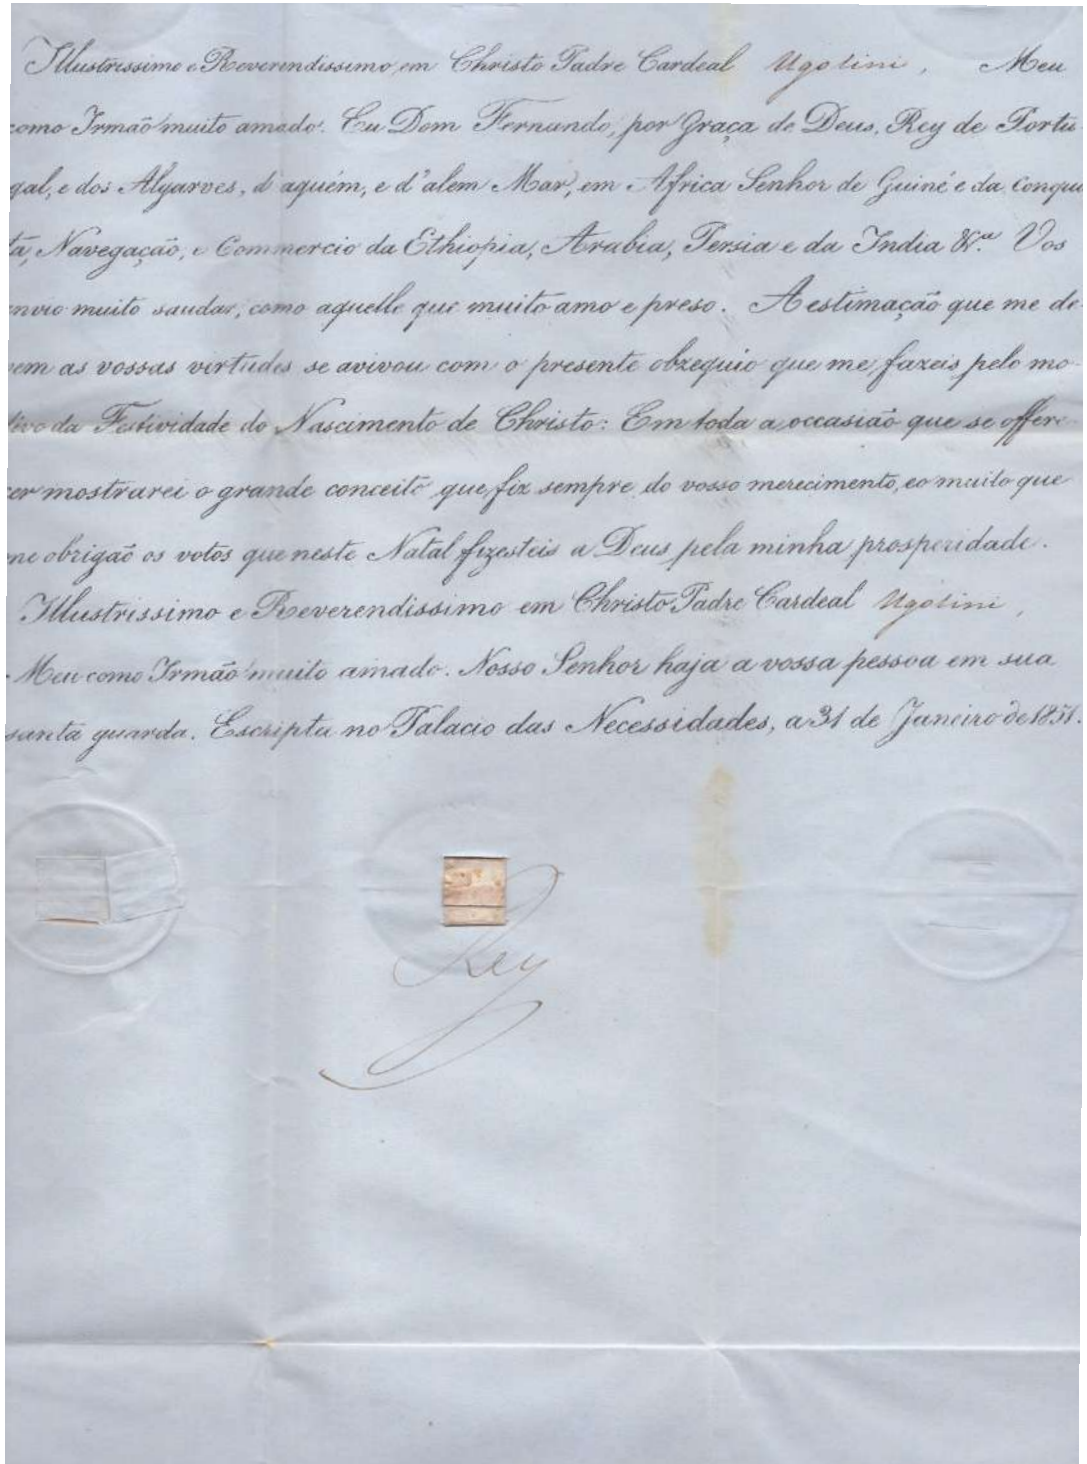 Illustrissimo e Reverendissimo em Christo Padre Cardeal Ugolini, Meu
como Irmão muito amado. Eu Dom Fernando, por Graça de Deus, Rey de Portu
gal, e dos Algarves, d'aquém, e d'alem Mar, em Africa Senhor de Guiné e da Conqui
ta, Navegação, e Commercio da Ethiopia, Arabia, Persia e da India &.ª Vos
envio muito saudar, como aquelle que muito amo e preso. A estimação que me de
vem as vossas virtudes se avivou com o presente obzequio que me fazeis pelo mo
tivo da Festividade do Nascimento de Christo: Em toda a occasião que se offere
cer mostrarei o grande conceito que fiz sempre do vosso merecimento, eo muito que
me obrigão os votos que neste Natal fizesteis a Deus pela minha prosperidade.
Illustrissimo e Reverendissimo em Christo Padre Cardeal Ugolini,
Meu como Irmão muito amado. Nosso Senhor haja a vossa pessoa em sua
santa guarda. Escripta no Palacio das Necessidades, a 31 de Janeiro de 1851.
Rey